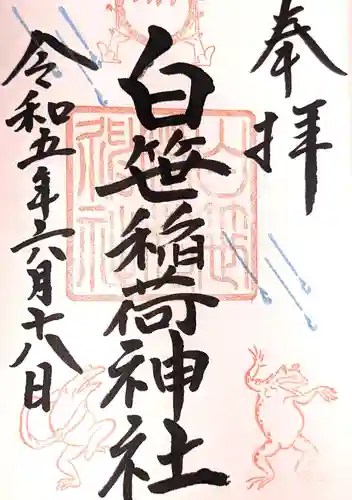 奉拝
白笹稲荷神社
令和五年六月十八日